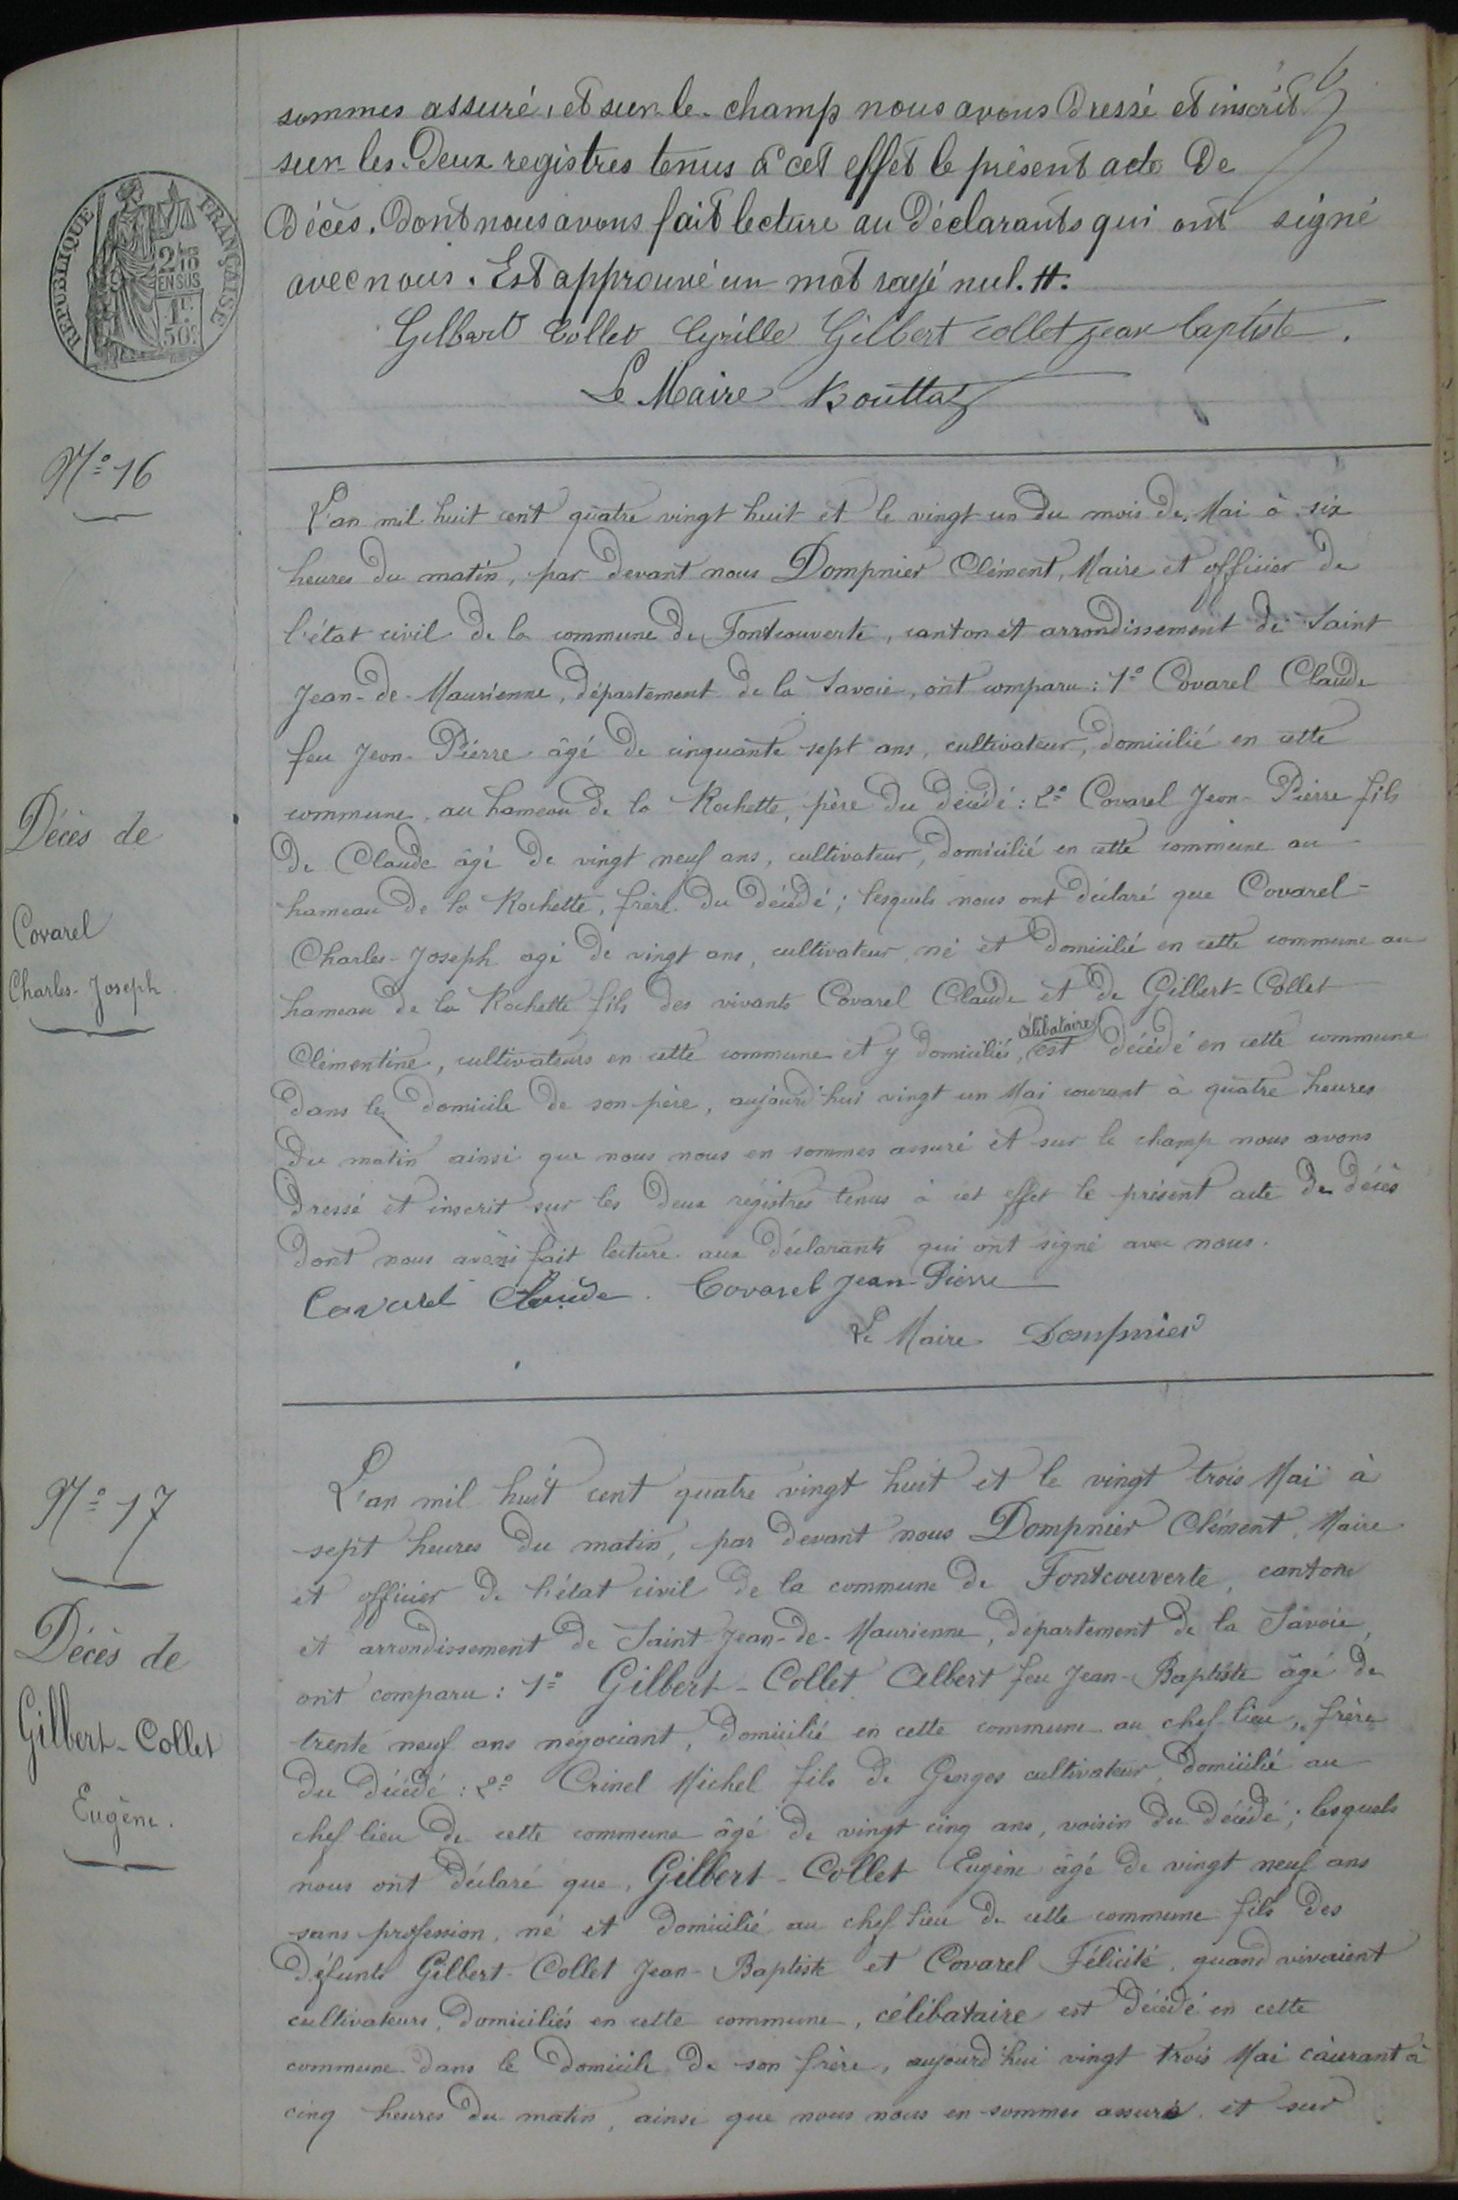 sommes assuré, et sur le champ nous avons dressé et inscrit
sur les deux registres tenus à cet effet le présent acte de
Décès. Dont nous avons fait lecture au Déclarants qui ont signé
avec nous. Est approuvé un mot rayé nul.
Gilbert Collet Cyrille Gilbert Collet jean baptiste.
Le Maire Bouttaz
RÉPUBLIQUE FRANÇAISE
2/10
EN SUS
1F.
50c.
N° 16
L'an mil huit cent quatre vingt huit et le vingt un du mois de Mai à six
heures du matin, par devant nous Dompnier Clément, Maire et officier de
l'état civil de la commune de Fontcouverte, canton et arrondissement de Saint
Jean-de-Maurienne, département de la Savoie, ont comparu: 1° Covarel Claude
feu Jean-Pierre âgé de cinquante sept ans, cultivateur, domicilié en cette
commune, au hameau de la Rochette, père du décédé: 2° Covarel Jean-Pierre fils
de Claude âgé de vingt neuf ans, cultivateur, domicilié en cette commune au
hameau de la Rochette, frère du décédé; lesquels nous ont déclaré que Covarel-
Charles-Joseph agé de vingt ans, cultivateur, né et domicilié en cette commune au
hameau de la Rochette fils des vivants Covarel Claude et de Gilbert-Collet
célibataire
Clémentine, cultivateurs en cette commune et y domiciliés, est décédé en cette commune
dans le domicile de son père, aujourd'hui vingt un Mai courant à quatre heures
du matin ainsi que nous nous en sommes assuré et sur le champ nous avons
dressé et inscrit sur les deux régistres tenus à cet effet le présent acte de décès
dont nous avons fait lecture aux déclarants qui ont signé avec nous.
Covarel Claude. Covarel Jean-Pierre
Le Maire Dompnier
Décès de
Covarel
Charles-Joseph.
N° 17
L'an mil huit cent quatre vingt huit et le vingt trois Mai à
sept heures du matin, par devant nous Dompnier Clément, Maire
et officier de l'état civil de la commune de Fontcouverte, canton
et arrondissement de Saint-Jean-de-Maurienne, département de la Savoie,
ont comparu: 1° Gilbert-Collet Albert feu Jean-Baptiste âgé de
trente neuf ans négociant, domicilié en cette commune au chef-lieu, frère
du décédé: 2° Crinel Michel fils de Georges cultivateur domicilié au
chef lieu de cette commune âgé de vingt cinq ans, voisin du décédé; lesquels
nous ont déclaré que, Gilbert-Collet Eugène âgé de vingt neuf ans
sans profession, né et domicilié au chef lieu de cette commune fils des
défunts Gilbert-Collet Jean-Baptiste et Covarel Félicité, quand vivaient
cultivateurs, domiciliés en cette commune, célibataire est décédé en cette
commune dans le domicile de son frère, aujourd'hui vingt trois Mai courant à
cinq heures du matin, ainsi que nous nous en sommes assuré et sur
Décès de
Gilbert-Collet
Eugène.